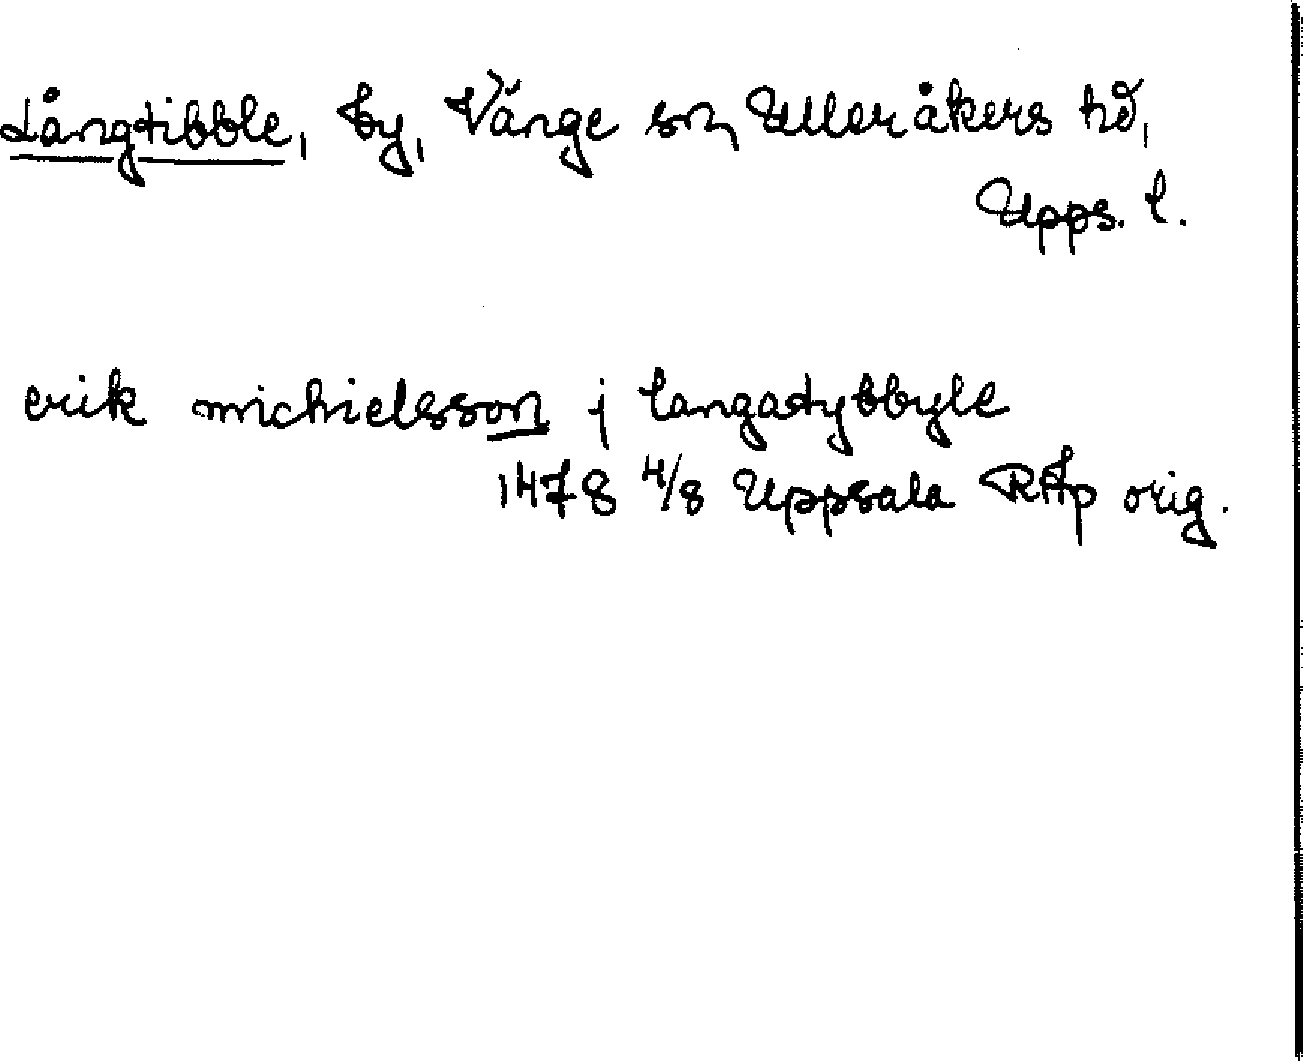 Långtibble, by, Vänge sn, Ulleråkers hd,
Upps. l.
erik michielsson j langadybbyle
1478 4/8 Uppsala RAp orig.